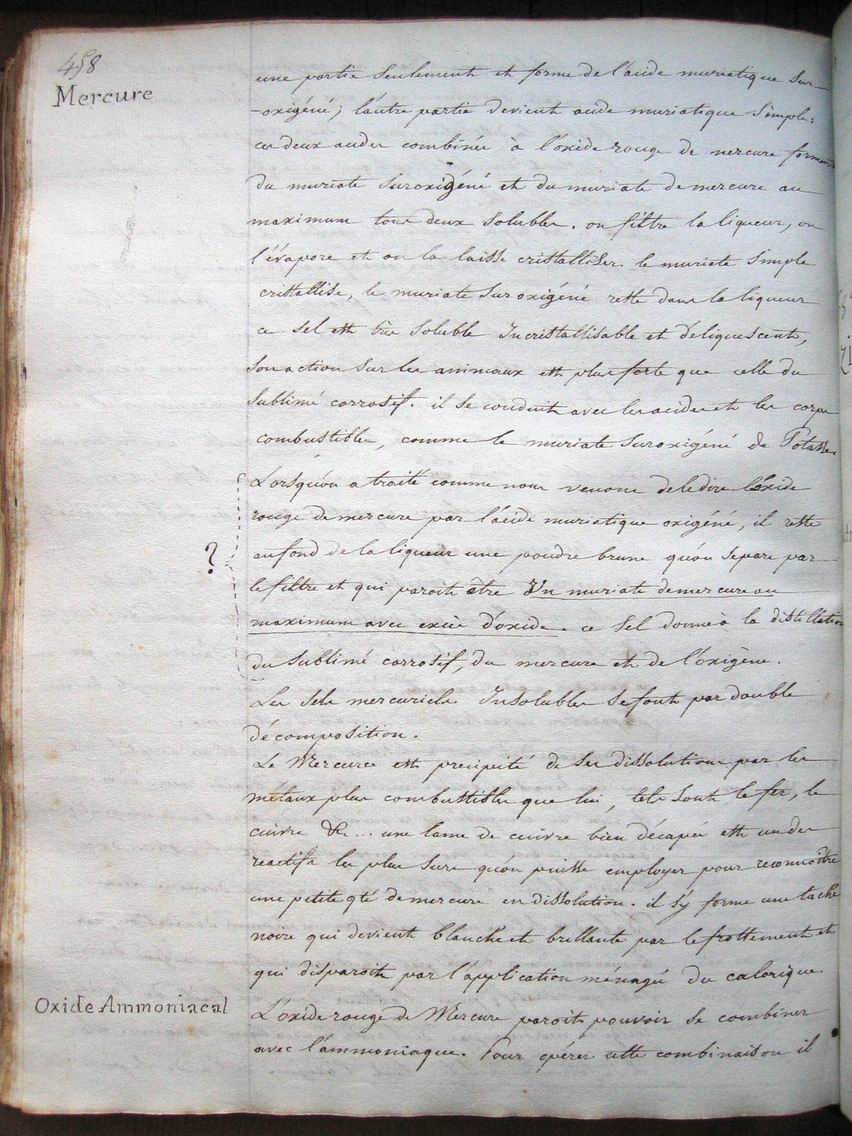 458
Mercure
une partie seulement et forme de l'acide muriatique sur-
-oxigéné; l'autre partie devient acide muriatique simple:
ces deux acides combinés à l'oxide rouge de mercure forment
du muriate suroxigéné et du muriate de mercure au
maximum tous deux solubles. on filtre la liqueur, on
l'évapore et on la laisse cristalliser. le muriate simple
cristallise, le muriate suroxigéné reste dans la liqueur
ce sel est très soluble Incristallisable et déliquescent,
son action sur les animaux est plus forte que celle du
sublimé corrosif. il se conduit avec les acides et les corps
combustibles, comme le muriate suroxigéné de Potasse.
Lorsqu'on a traité comme nous venons de le dire l'oxide
rouge de mercure par l'acide muriatique oxigéné, il reste
?
au fond de la liqueur une poudre brune qu'on separe par
le filtre et qui paroit être Un muriate de mercure au
maximum avec excès d'oxide. ce sel donne à la distillation
du sublimé corrosif, du mercure et de l'oxigène.
Les sels mercuriels Insolubles se font par double
décomposition.
Le Mercure est precipité de ses dissolutions par les
métaux plus combustibles que lui, tels sont le fer, le
cuivre &c... une lame de cuivre bien décapée est un des
reactifs les plus surs qu'on puisse employer pour reconnoître
une petite qté de mercure en dissolution. il s'y forme une tache
noire qui devient blanche et brillante par le frottement et
qui disparoit par l'application ménagée du calorique
Oxide Ammoniacal
L'oxide rouge de Mercure paroit pouvoir se combiner
avec l'ammoniaque. Pour opérer cette combinaison il